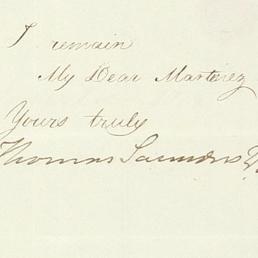 I remain
My Dear Martinez
Yours truly
Thomas Saunders